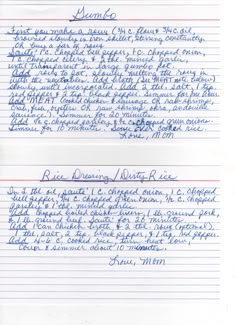 Gumbo
First you make a Roux (3/4 c. flour & 3/4 c. oil,
browned slowly in iron skillet, stirring constantly,
OR buy a jar of roux)
Sauté 1 c. chopped bell pepper, 1 c. chopped onion,
1 c. chopped celery, & 2 tbs. minced garlic,
until transparent in large gumbo pot.
Add roux to pot, slowly melting the roux in
with the vegetables. Add broth (See MEAT note below)
slowly, until incorporated. Add 2 tbs. salt, 1 tsp.
red pepper, & 2 tsp. black pepper. Simmer for
Add MEAT Cooked chicken & Sausage, OR raw shrimp,
crab, fish, oysters OR raw shrimp, okra, andouille
sausage). Simmer for 20 minutes.
Add 1/2 c. chopped parsley & 1/2 c. chopped green onions.
Simmer for 10 minutes. Serve over cooked rice.
Love, Mom
Rice Dressing / Dirty Rice
In 2 tbs. oil, sauté 1 c. chopped onion, 1 c. chopped
bell pepper, 1/2 c. chopped green onion, 1/2 c. chopped
parsley & 1 tbs. minced garlic.
Add chopped boiled chicken livers, 1 lb. ground pork,
& 1 lb. ground beef. Sauté for 20 minutes.
Add 1 can chicken broth & 2 tbs. roux (optional),
1 tbs. salt, 2 tsp. black pepper, & 1 tsp. red pepper.
Add 4-6 c. cooked rice, turn heat low,
cover & simmer about 10 minutes.
Love, Mom